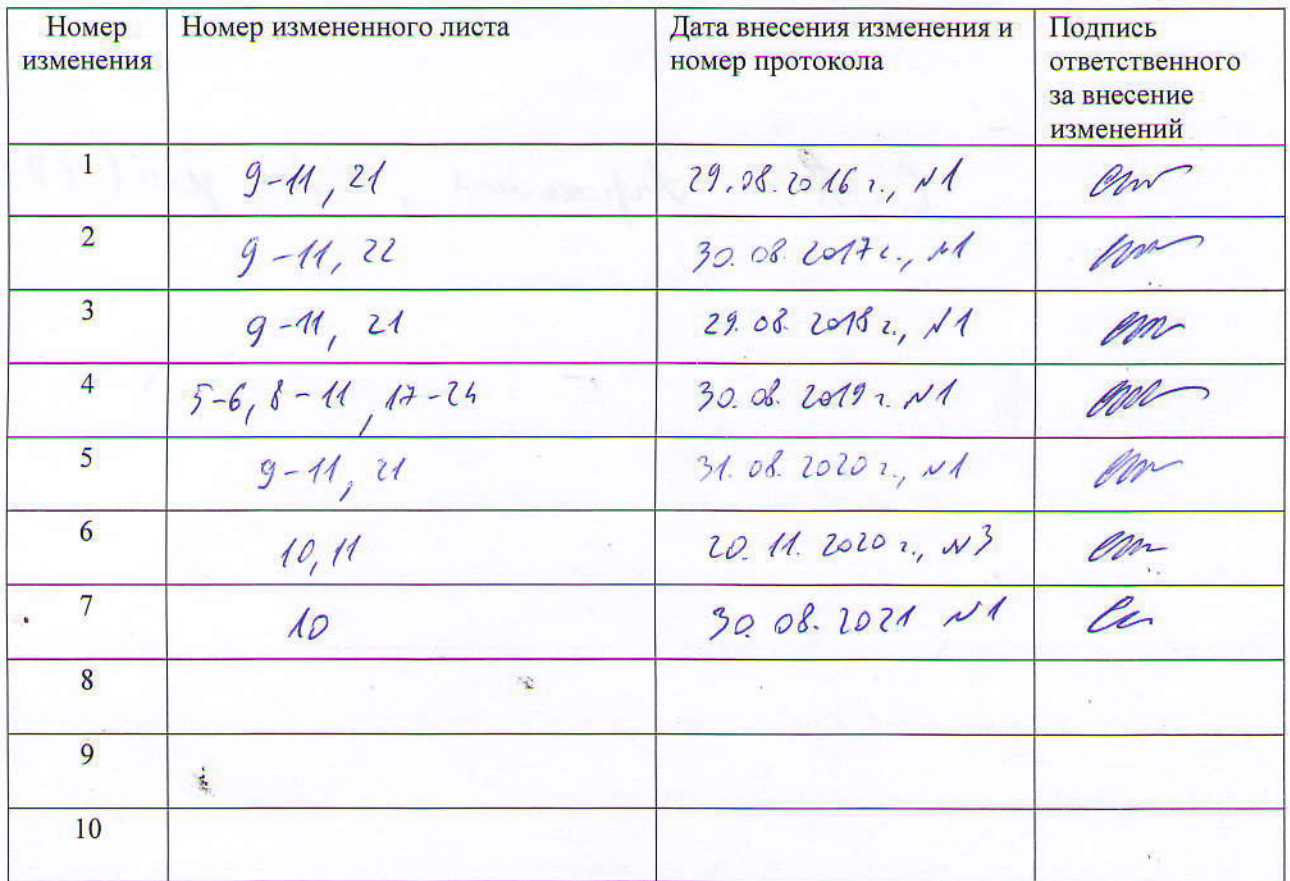 Номер изменения Номер измененного листа Дата внесения изменения и номер протокола Подпись ответственного за внесение изменений
1 9-11, 21 29.08.2016 г., №1
2 9-11, 22 30.08.2017 г., №1
3 9-11, 21 29.08.2018 г., №1
4 5-6, 8-11, 17-24 30.08.2019 г. №1
5 9-11, 21 31.08.2020 г., №1
6 10, 11 20.11.2020 г., №3
7 10 30.08.2021 №1
8
9
10